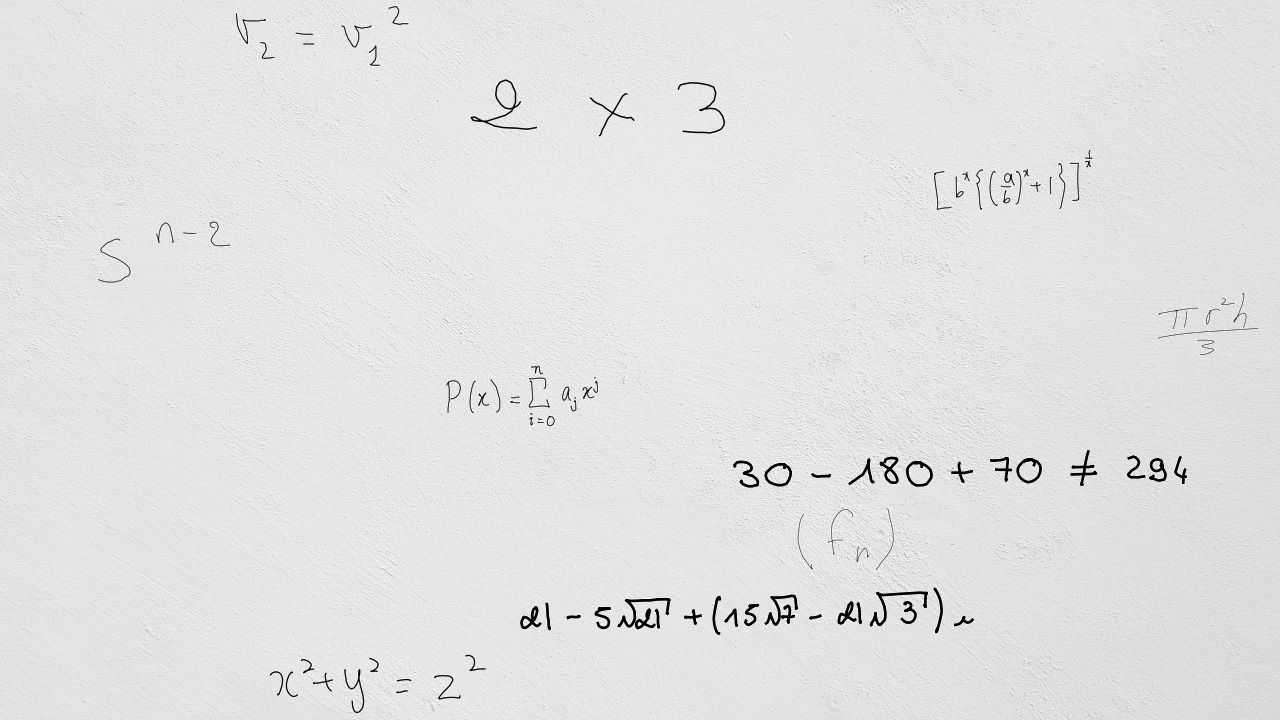 v_2 = v_1^2
2 × 3
[b^x{(a/b)^x + 1}]^{1/x}
S^{n-2}
πr^2h/3
P(x) = \sum_{i=0}^{n} a_j x^j
30 - 180 + 70 ≠ 294
(f_n)
21 - 5√21 + (15√7 - 21√3) i
x^2 + y^2 = z^2